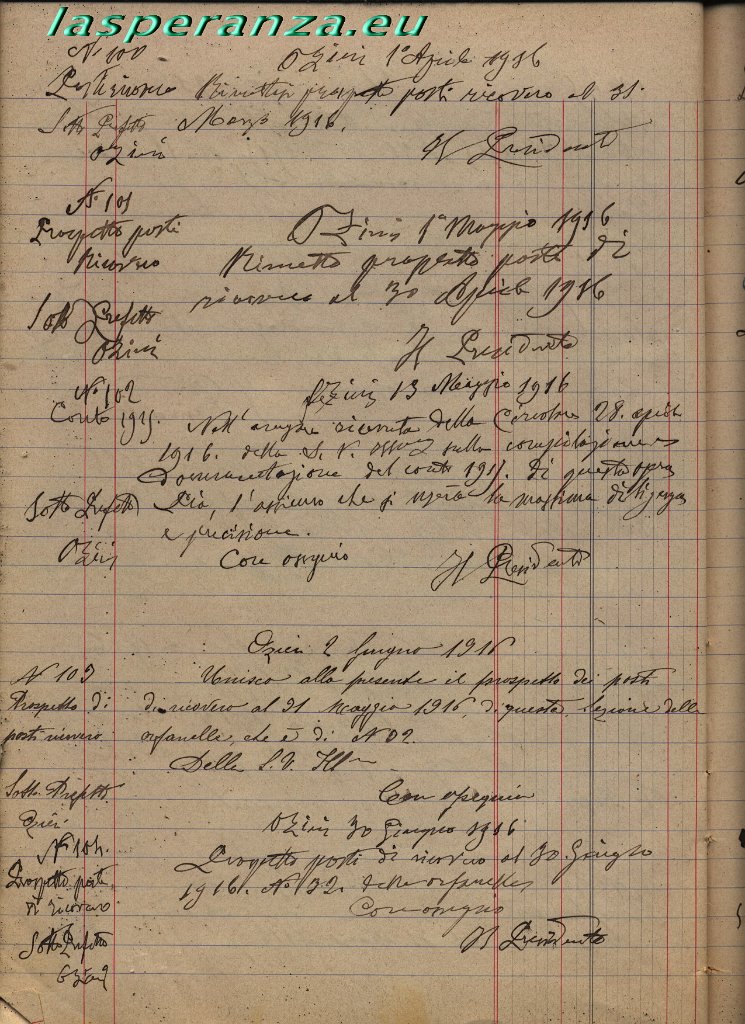 lasperanza.eu
N° 100
Ozieri 1° Aprile 1916
Rimetto prospetto posti ricovero al 31.
Sotto Prefetto
Marzo 1916.
Ozieri
Il Presidente
N° 101
Ozieri 1° Maggio 1916
Prospetto posti
Ricovero
Rimetto prospetto posti di
ricovero al 30 Aprile 1916
Sotto Prefetto
Ozieri
Il Presidente
N° 102
Ozieri 13 Maggio 1916
Conto 1915.
Nell' ricevuta della Circolare 28. aprile
1916. della S. V. sulla compilazione e
documentazione del conto 1915. di questa opera
Sotto Prefetto
Pia, l'assicuro che si userà la massima diligenza
e precisione.
Ozieri
Con ossequio
Il Presidente
Ozieri 2 Giugno 1916
N° 103
Unisco alla presente il prospetto dei posti
Prospetto di
di ricovero al 31 Maggio 1916, di questa Sezione delle
posti ricovero
orfanelle, che è di N° 32.
Della S. V. Ill
Sotto Prefetto
Con ossequio
Ozieri
Ozieri 30 Giugno 1916
N° 104.
Prospetto posti di ricovero al 30 Giugno
Prospetto posti
di ricovero
1916. N° 32. delle orfanelle
Con ossequio
Sotto Prefetto
Il Presidente
Ozieri